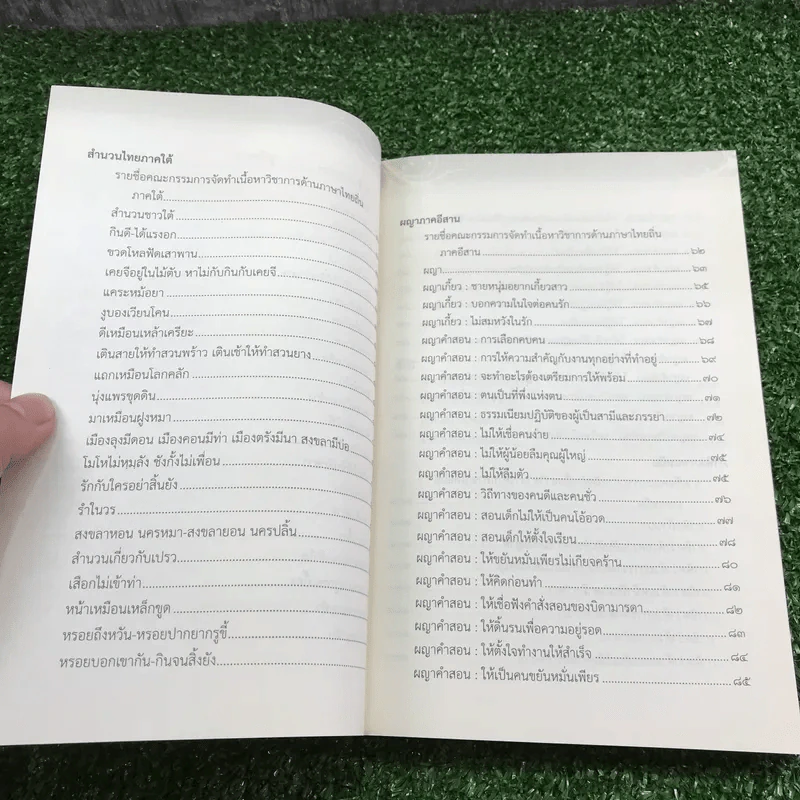 สำนวนไทยภาคใต้
รายชื่อคณะกรรมการจัดทำเนื้อหาวิชาการด้านภาษาไทยถิ่น
ภาคใต้
สำนวนชาวใต้
กินดี-ได้แรงอก
ขวดโหลฟัดเสาพาน
เคยจีอยู่ในไม้ตับ หาไม่กับกินกับเคยจี
แคระหม้อยา
งูบองเวียนโคน
ดีเหมือนเหล้าเครียะ
เดินสายให้ทำสวนพร้าว เดินเช้าให้ทำสวนยาง
แถกเหมือนโลกคลัก
นุ่งแพรขุดดิน
มาเหมือนฝูงหมา
เมืองลุงมีดอน เมืองคอนมีท่า เมืองตรังมีนา สงขลามีบ่อ
โมโหไม่หมฺลัง ชังกั้งไม่เพื่อน
รักกับใครอย่าสิ้นยัง
รำในวร
สงขลาหอน นครหมา-สงขลายอน นครปลิ้น
สำนวนเกี่ยวกับเปรว
เสือกไม่เข้าท่า
หน้าเหมือนเหล็กขูด
หรอยถึงหวัน-หรอยปากยากรูขี้
หรอยบอกเขากัน-กินจนสิ้งยัง
ผญาภาคอีสาน
รายชื่อคณะกรรมการจัดทำเนื้อหาวิชาการด้านภาษาไทยถิ่น
ภาคอีสาน ๖๒
ผญา ๖๓
ผญาเกี้ยว : ชายหนุ่มอยากเกี้ยวสาว ๖๕
ผญาเกี้ยว : บอกความในใจต่อคนรัก ๖๖
ผญาเกี้ยว : ไม่สมหวังในรัก ๖๗
ผญาคำสอน : การเลือกคบคน ๖๘
ผญาคำสอน : การให้ความสำคัญกับงานทุกอย่างที่ทำอยู่ ๖๙
ผญาคำสอน : จะทำอะไรต้องเตรียมการให้พร้อม ๗๐
ผญาคำสอน : ตนเป็นที่พึ่งแห่งตน ๗๑
ผญาคำสอน : ธรรมเนียมปฏิบัติของผู้เป็นสามีและภรรยา ๗๒
ผญาคำสอน : ไม่ให้เชื่อคนง่าย ๗๔
ผญาคำสอน : ไม่ให้ผู้น้อยลืมคุณผู้ใหญ่ ๗๕
ผญาคำสอน : ไม่ให้ลืมตัว ๗๕
ผญาคำสอน : วิถีทางของคนดีและคนชั่ว ๗๖
ผญาคำสอน : สอนเด็กไม่ให้เป็นคนโอ้อวด ๗๗
ผญาคำสอน : สอนเด็กให้ตั้งใจเรียน ๗๘
ผญาคำสอน : ให้ขยันหมั่นเพียรไม่เกียจคร้าน ๘๐
ผญาคำสอน : ให้คิดก่อนทำ ๘๑
ผญาคำสอน : ให้เชื่อฟังคำสั่งสอนของบิดามารดา ๘๒
ผญาคำสอน : ให้ดิ้นรนเพื่อความอยู่รอด ๘๓
ผญาคำสอน : ให้ตั้งใจทำงานให้สำเร็จ ๘๔
ผญาคำสอน : ให้เป็นคนขยันหมั่นเพียร ๘๕